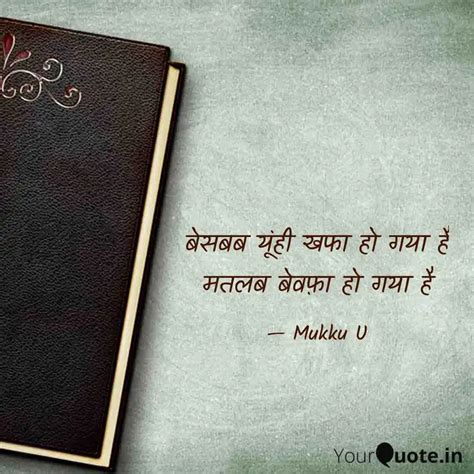 बेसबब यूंही खफा हो गया है
मतलब बेवफ़ा हो गया है
— Mukku U
YourQuote.in